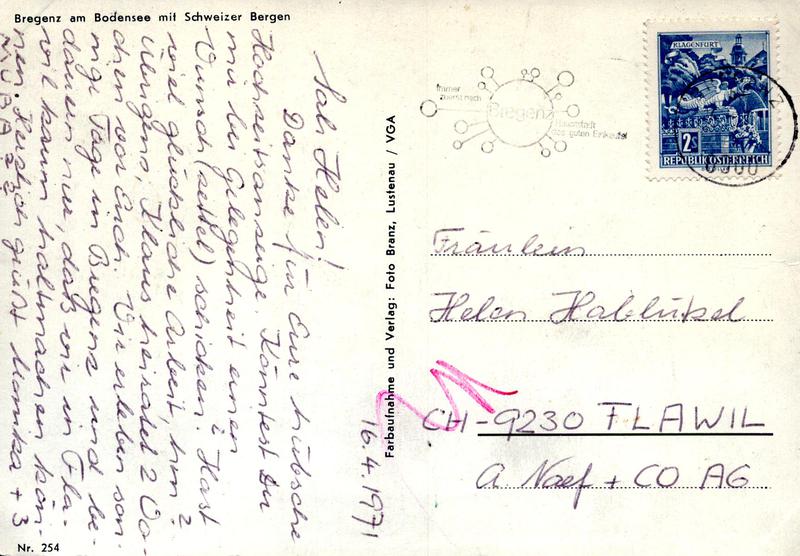 Bregenz am Bodensee mit Schweizer Bergen
Sali Helen!
Danke für Eure hübsche
Hochzeitsanzeige. Könntest Du
mir bei Gelegenheit einen
Wunsch(zettel) schicken? Hast
viel glückliche Arbeit hm?
Übrigens, Klaus heiratet 2 Wo-
chen vor Euch. Wir erleben son-
nige Tage in Bregenz und be-
dauern nur, daß wir in Fla-
wil kaum haltmachen kön-
nen. Herzlich grüßt Monika + 3
MUBA
16.4.1971
Farbaufnahme und Verlag: Foto Branz, Lustenau / VGA
Immer
zuerst nach
Bregenz
Hauptstadt
des guten Einkaufs!
KLAGENFURT
2S
REPUBLIK ÖSTERREICH
BREGENZ
6900
Fräulein
Helen Hablützel
CH-9230 FLAWIL
A Naef + CO AG
Nr. 254